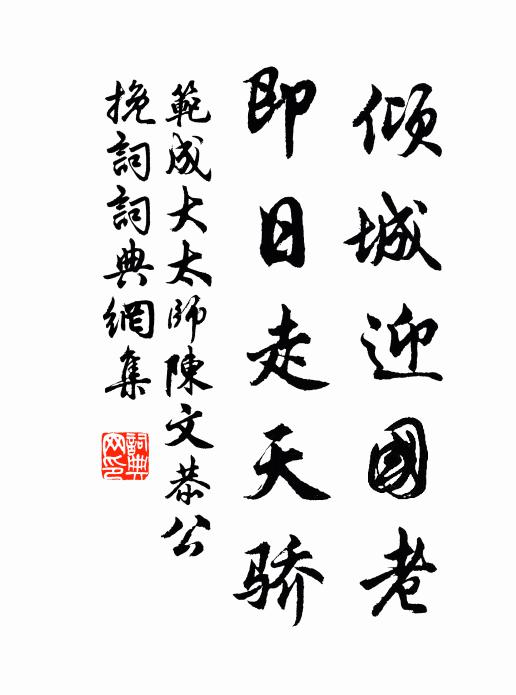 倾城迎國老
即日走天骄
範成大太師陳文恭公
挽詞詞典網集
詞典网印